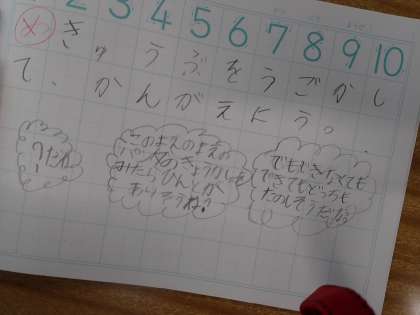 2 3 4 5 6 7 8 9 10
め
き ゅ う ぶ を う ご か し
て、 か ん が え よ う。
？だね
このまえのよえの
みたらひんとが
わかりそうね？
でもできなくても
できてもどっちも
たのしそうだな